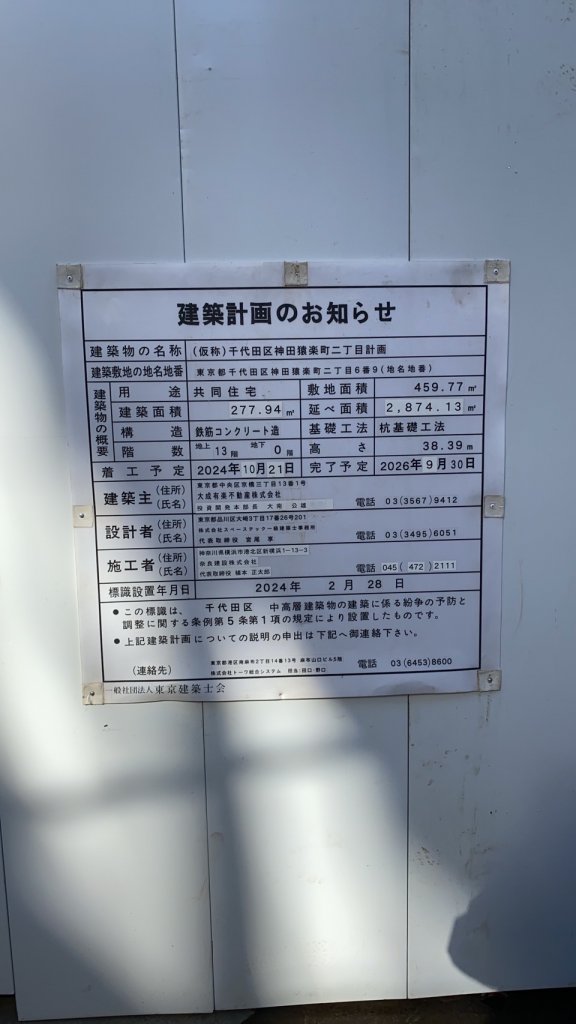 建築計画のお知らせ
建築物の名称 (仮称)千代田区神田猿楽町二丁目計画
建築敷地の地名地番 東京都千代田区神田猿楽町二丁目6番9(地名地番)
建築物の概要
用途 共同住宅 敷地面積 459.77㎡
建築面積 277.94㎡ 延べ面積 2,874.13㎡
構造 鉄筋コンクリート造 基礎工法 杭基礎工法
階数 地上 13階 地下 0階 高さ 38.39m
着工予定 2024年10月21日 完了予定 2026年9月30日
建築主(住所)(氏名) 東京都中央区京橋三丁目13番1号
大成有楽不動産株式会社
投資開発本部長 大南 公雄 電話 03(3567)9412
設計者(住所)(氏名) 東京都品川区大崎3丁目17番26号201
株式会社スペーステック一級建築士事務所
代表取締役 宮尾 享 電話 03(3495)6051
施工者(住所)(氏名) 神奈川県横浜市港北区新横浜1-13-3
奈良建設株式会社
代表取締役 植本 正太郎 電話 045(472)2111
標識設置年月日 2024年 2月 28日
● この標識は、 千代田区 中高層建築物の建築に係る紛争の予防と
調整に関する条例第5条第1項の規定により設置したものです。
● 上記建築計画についての説明の申出は下記へ御連絡下さい。
(連絡先) 東京都港区南麻布2丁目14番13号 麻布山口ビル5階
株式会社トーワ総合システム 担当:田口・野口 電話 03(6453)8600
一般社団法人東京建築士会